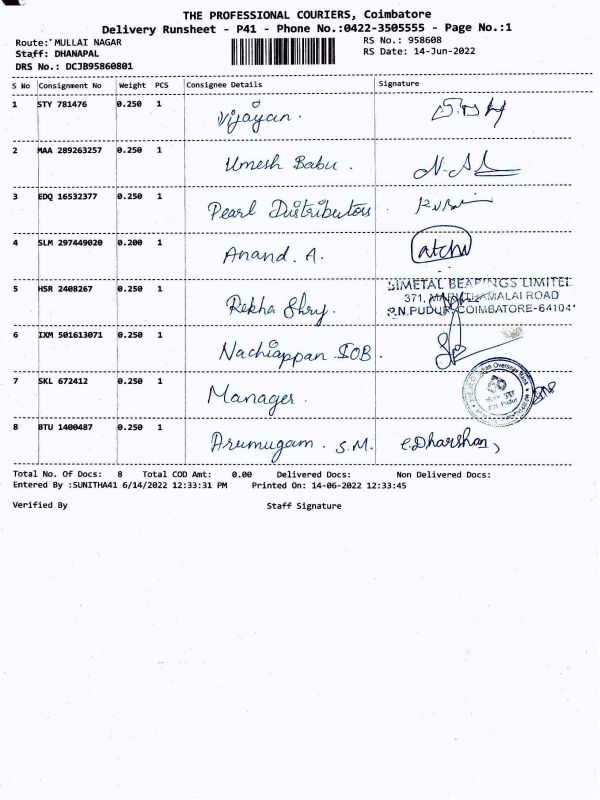 THE PROFESSIONAL COURIERS, Coimbatore
Delivery Runsheet - P41 - Phone No.:0422-3505555 - Page No.:1
Route: MULLAI NAGAR RS No.: 958608
Staff: DHANAPAL RS Date: 14-Jun-2022
DRS No.: DCJB95860801
S No Consignment No Weight PCS Consignee Details Signature
1 STY 781476 0.250 1 Vijayan.
2 MAA 289263257 0.250 1 Umesh Babu.
3 EDQ 16532377 0.250 1 Pearl Distributors
4 SLM 297449020 0.200 1 Anand. A.
5 HSR 2408267 0.250 1 Rekha Shry.
BIMETAL BEARINGS LIMITED
371, MARUTHAMALAI ROAD
P.N.PUDUR, COIMBATORE-641041
6 IXM 501613071 0.250 1 Nachiappan IOB.
7 SKL 672412 0.250 1 Manager.
Indian Overseas Bank
P.N. Pudur
8 BTU 1400487 0.250 1 Arumugam. S.M. C.Dharshan,
Total No. Of Docs: 8 Total COD Amt: 0.00 Delivered Docs: Non Delivered Docs:
Entered By :SUNITHA41 6/14/2022 12:33:31 PM Printed On: 14-06-2022 12:33:45
Verified By Staff Signature